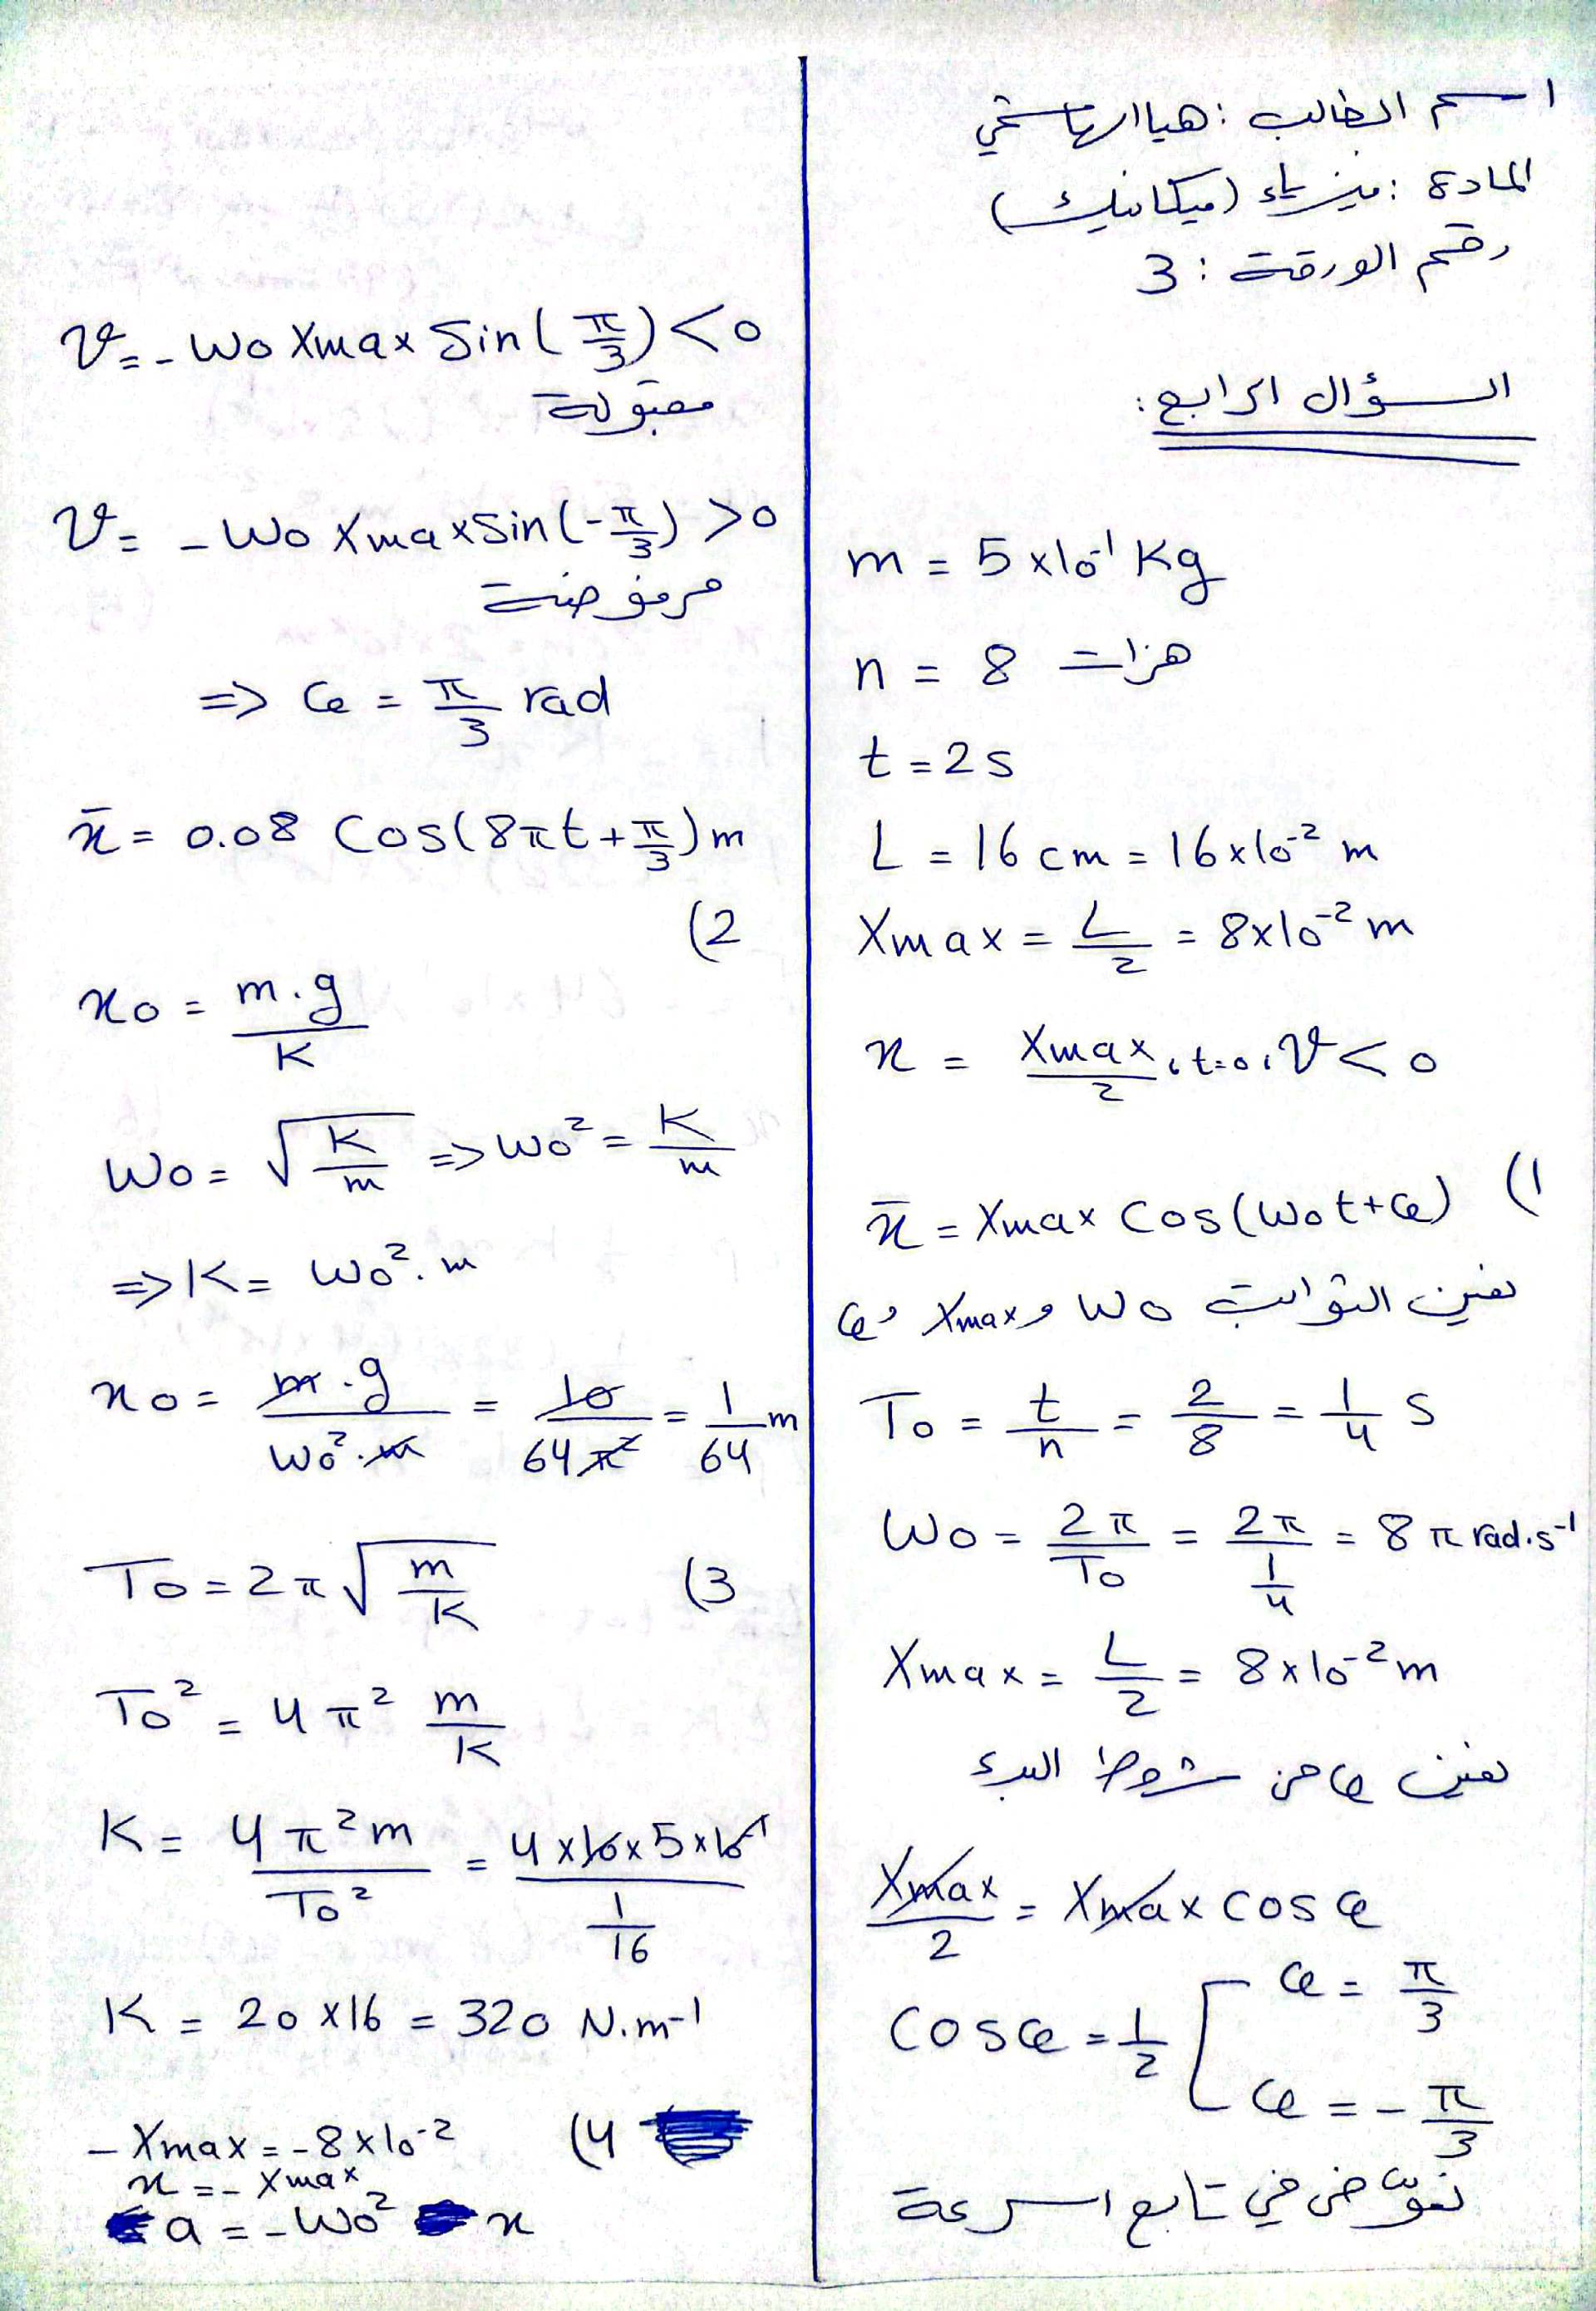 اسم الطالب : هيا الهاشمي
المادة : فيزياء (ميكانيك)
رقم الورقة : 3
السؤال الرابع :
m = 5 x 10⁻¹ Kg
n = 8 هزات
t = 2 s
L = 16 cm = 16 x 10⁻² m
Xmax = L/2 = 8 x 10⁻² m
x = Xmax/2 ، t=0 ، v < 0
(1 x̄ = Xmax Cos(ω₀t + φ)
نعين الثوابت ω₀ و Xmax و φ
T₀ = t/n = 2/8 = 1/4 s
ω₀ = 2π/T₀ = 2π/(1/4) = 8π rad.s⁻¹
Xmax = L/2 = 8 x 10⁻² m
نعين φ من شروط البدء
Xmax/2 = Xmax cos φ
Cos φ = 1/2 [ φ = π/3
φ = - π/3
نعوّض في تابع السرعة
v = - ω₀ Xmax Sin(π/3) < 0
مقبولة
v = - ω₀ Xmax Sin(-π/3) > 0
مرفوضة
=> φ = π/3 rad
x̄ = 0.08 Cos(8πt + π/3) m
(2
x₀ = m.g/K
ω₀ = √(K/m) => ω₀² = K/m
=> K = ω₀².m
x₀ = m.g/ω₀².m = 10/64π² = 1/64 m
(3 T₀ = 2π√(m/K)
T₀² = 4π² m/K
K = 4π²m/T₀² = 4 x 10 x 5 x 10⁻¹/(1/16)
K = 20 x 16 = 320 N.m⁻¹
(4 - Xmax = - 8 x 10⁻²
x = - Xmax
a = - ω₀² x